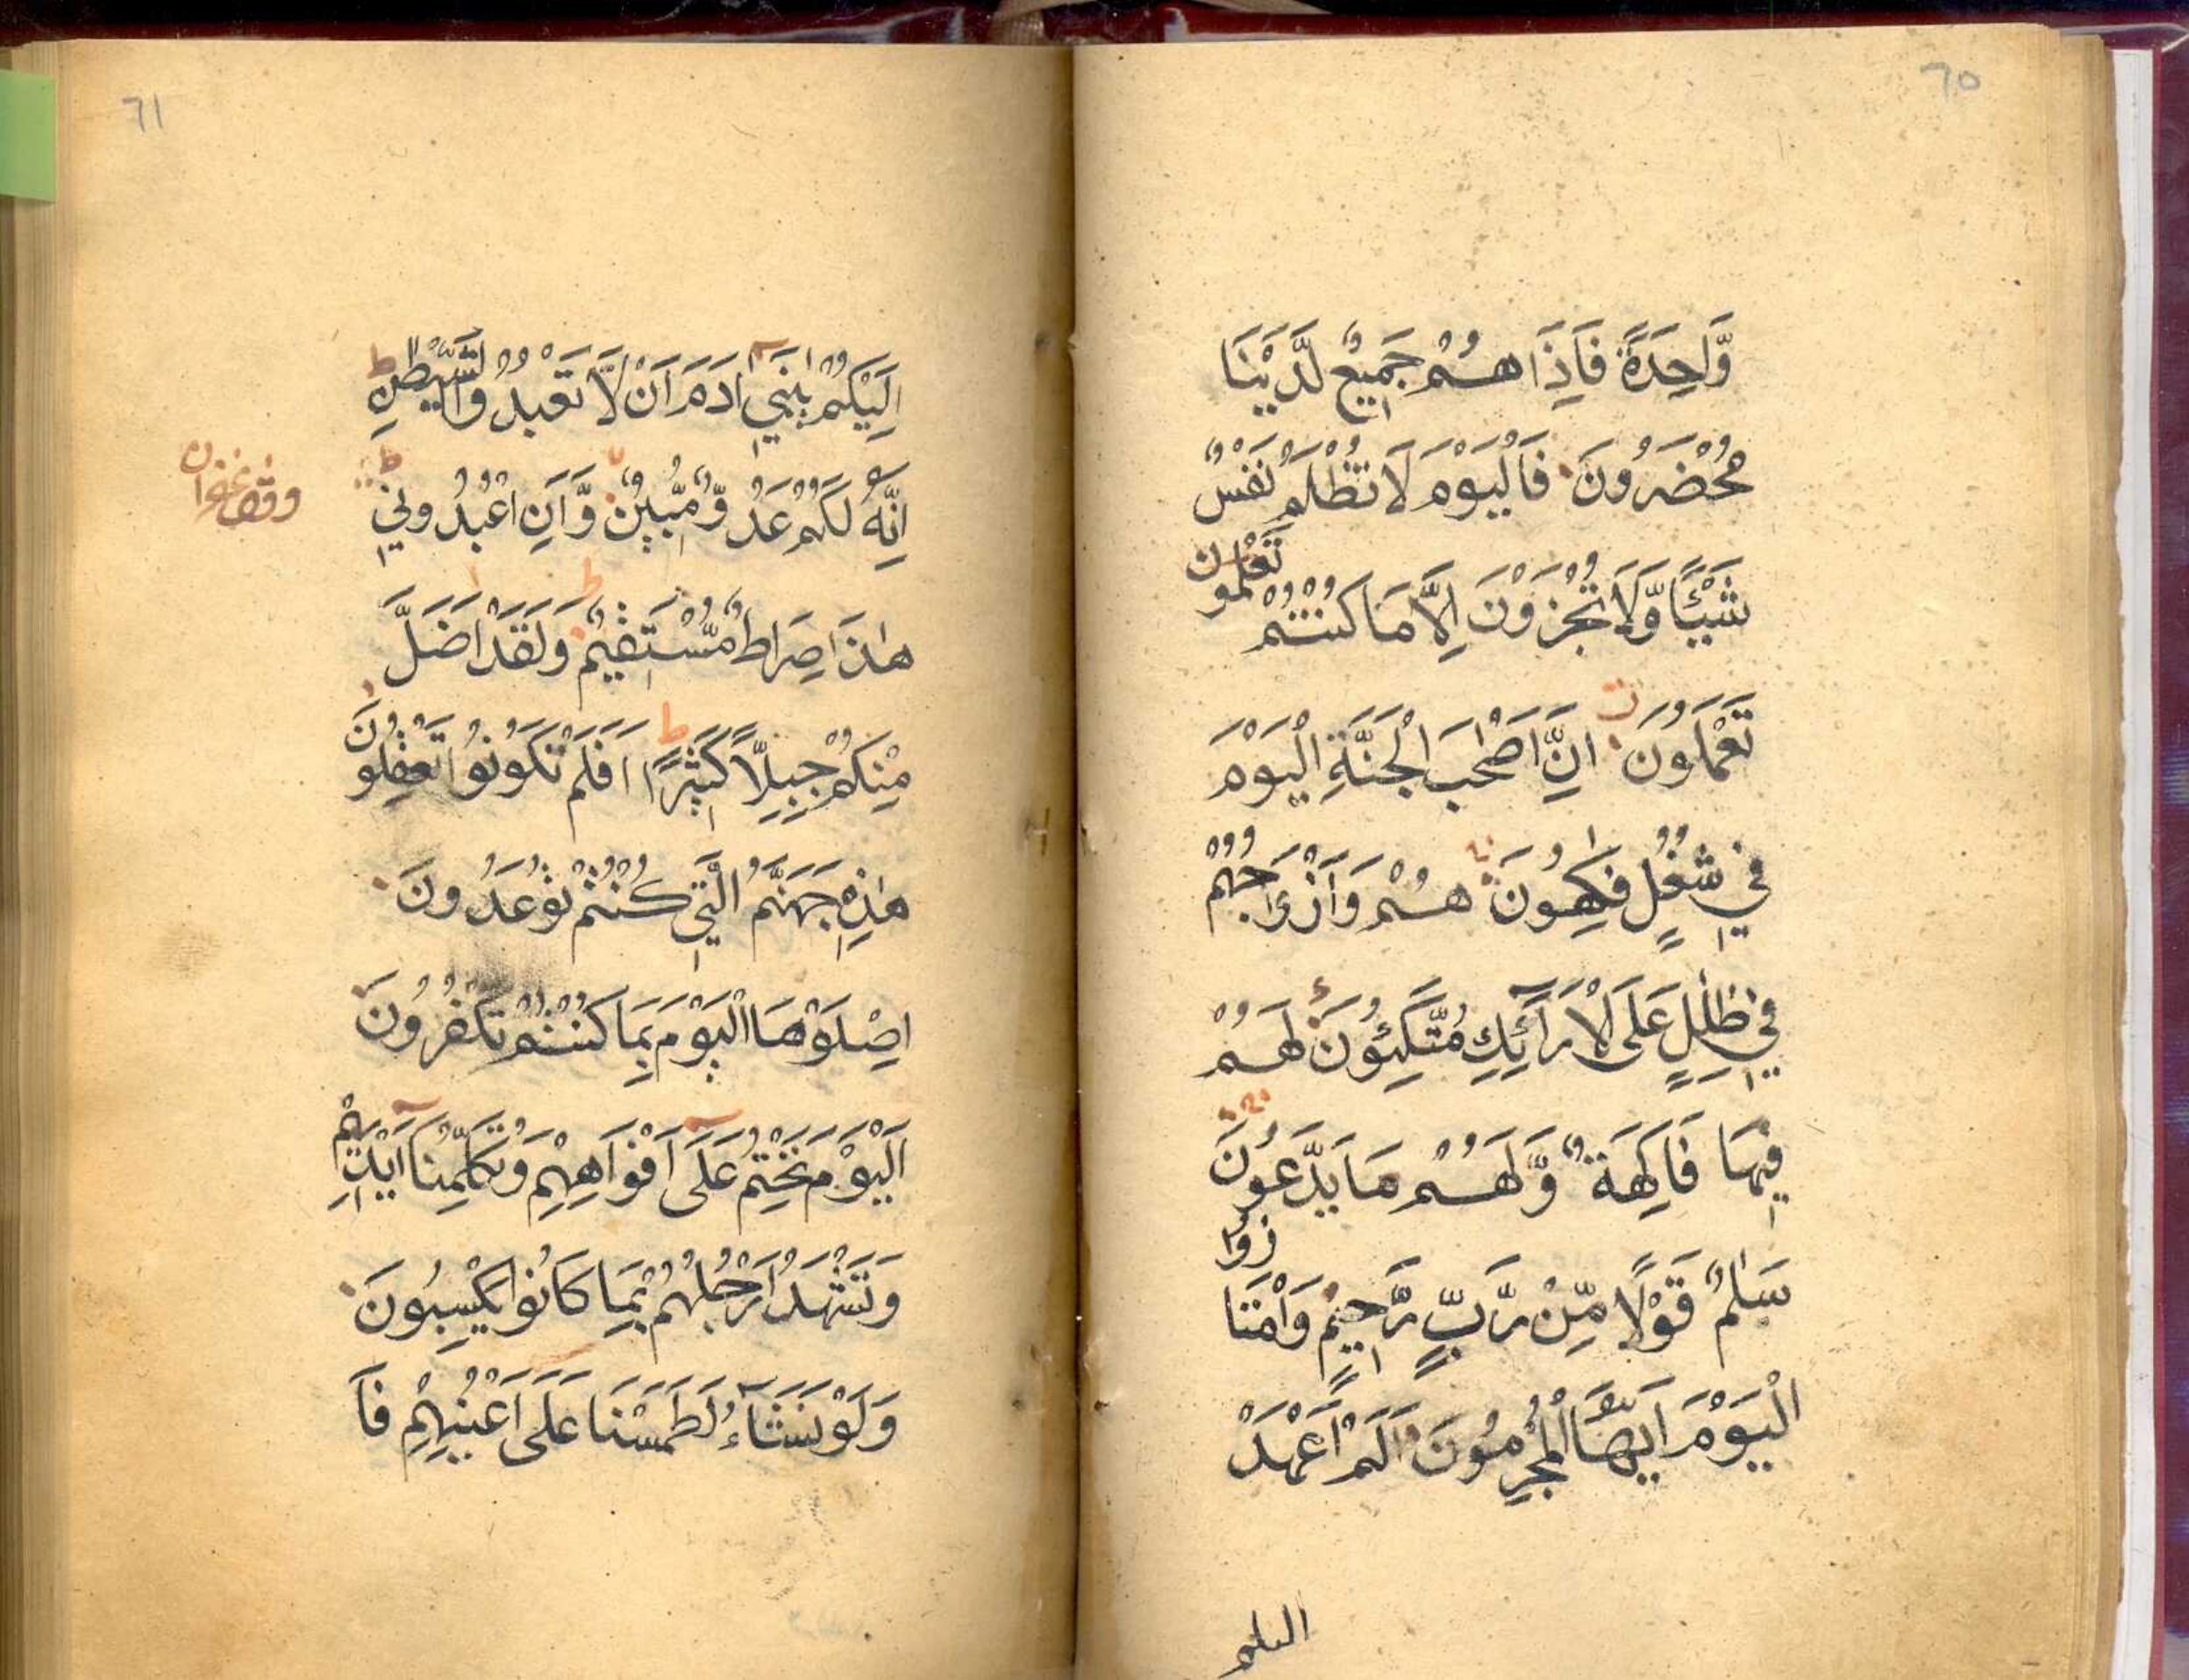 ٦٥
وَّاحِدَةً فَاِذَا هُمْ جَمِيْعٌ لَّدَيْنَا
مُحْضَرُوْنَ فَالْيَوْمَ لَا تُظْلَمُ نَفْسٌ
شَيْئًا وَّلَا تُجْزَوْنَ اِلَّا مَا كُنْتُمْ تَعْلَمُون
تَعْمَلُوْنَ اِنَّ اَصْحٰبَ الْجَنَّةِ الْيَوْمَ
فِيْ شُغُلٍ فٰكِهُوْنَ هُمْ وَاَزْوَاجُهُمْ
فِيْ ظِلٰلٍ عَلَى الْاَرَآئِكِ مُتَّكِئُوْنَ لَهُمْ
فِيْهَا فَاكِهَةٌ وَّلَهُمْ مَا يَدَّعُوْنَ
سَلٰمٌ قَوْلًا مِّنْ رَّبٍّ رَّحِيْمٍ وَامْتَازُوا
الْيَوْمَ اَيُّهَا الْمُجْرِمُوْنَ اَلَمْ اَعْهَدْ
اليكم
٦١
اِلَيْكُمْ يٰبَنِيْٓ اٰدَمَ اَنْ لَّا تَعْبُدُوا الشَّيْطٰنَ ط
اِنَّهٗ لَكُمْ عَدُوٌّ مُّبِيْنٌ وَّاَنِ اعْبُدُوْنِيْ ط
وقف غفران
هٰذَا صِرَاطٌ مُّسْتَقِيْمٌ وَلَقَدْ اَضَلَّ
مِنْكُمْ جِبِلًّا كَثِيْرًا ط اَفَلَمْ تَكُوْنُوْا تَعْقِلُوْنَ
هٰذِهٖ جَهَنَّمُ الَّتِيْ كُنْتُمْ تُوْعَدُوْنَ
اِصْلَوْهَا الْيَوْمَ بِمَا كُنْتُمْ تَكْفُرُوْنَ
اَلْيَوْمَ نَخْتِمُ عَلٰٓى اَفْوَاهِهِمْ وَتُكَلِّمُنَآ اَيْدِيْهِمْ
وَتَشْهَدُ اَرْجُلُهُمْ بِمَا كَانُوْا يَكْسِبُوْنَ
وَلَوْ نَشَآءُ لَطَمَسْنَا عَلٰٓى اَعْيُنِهِمْ فَا